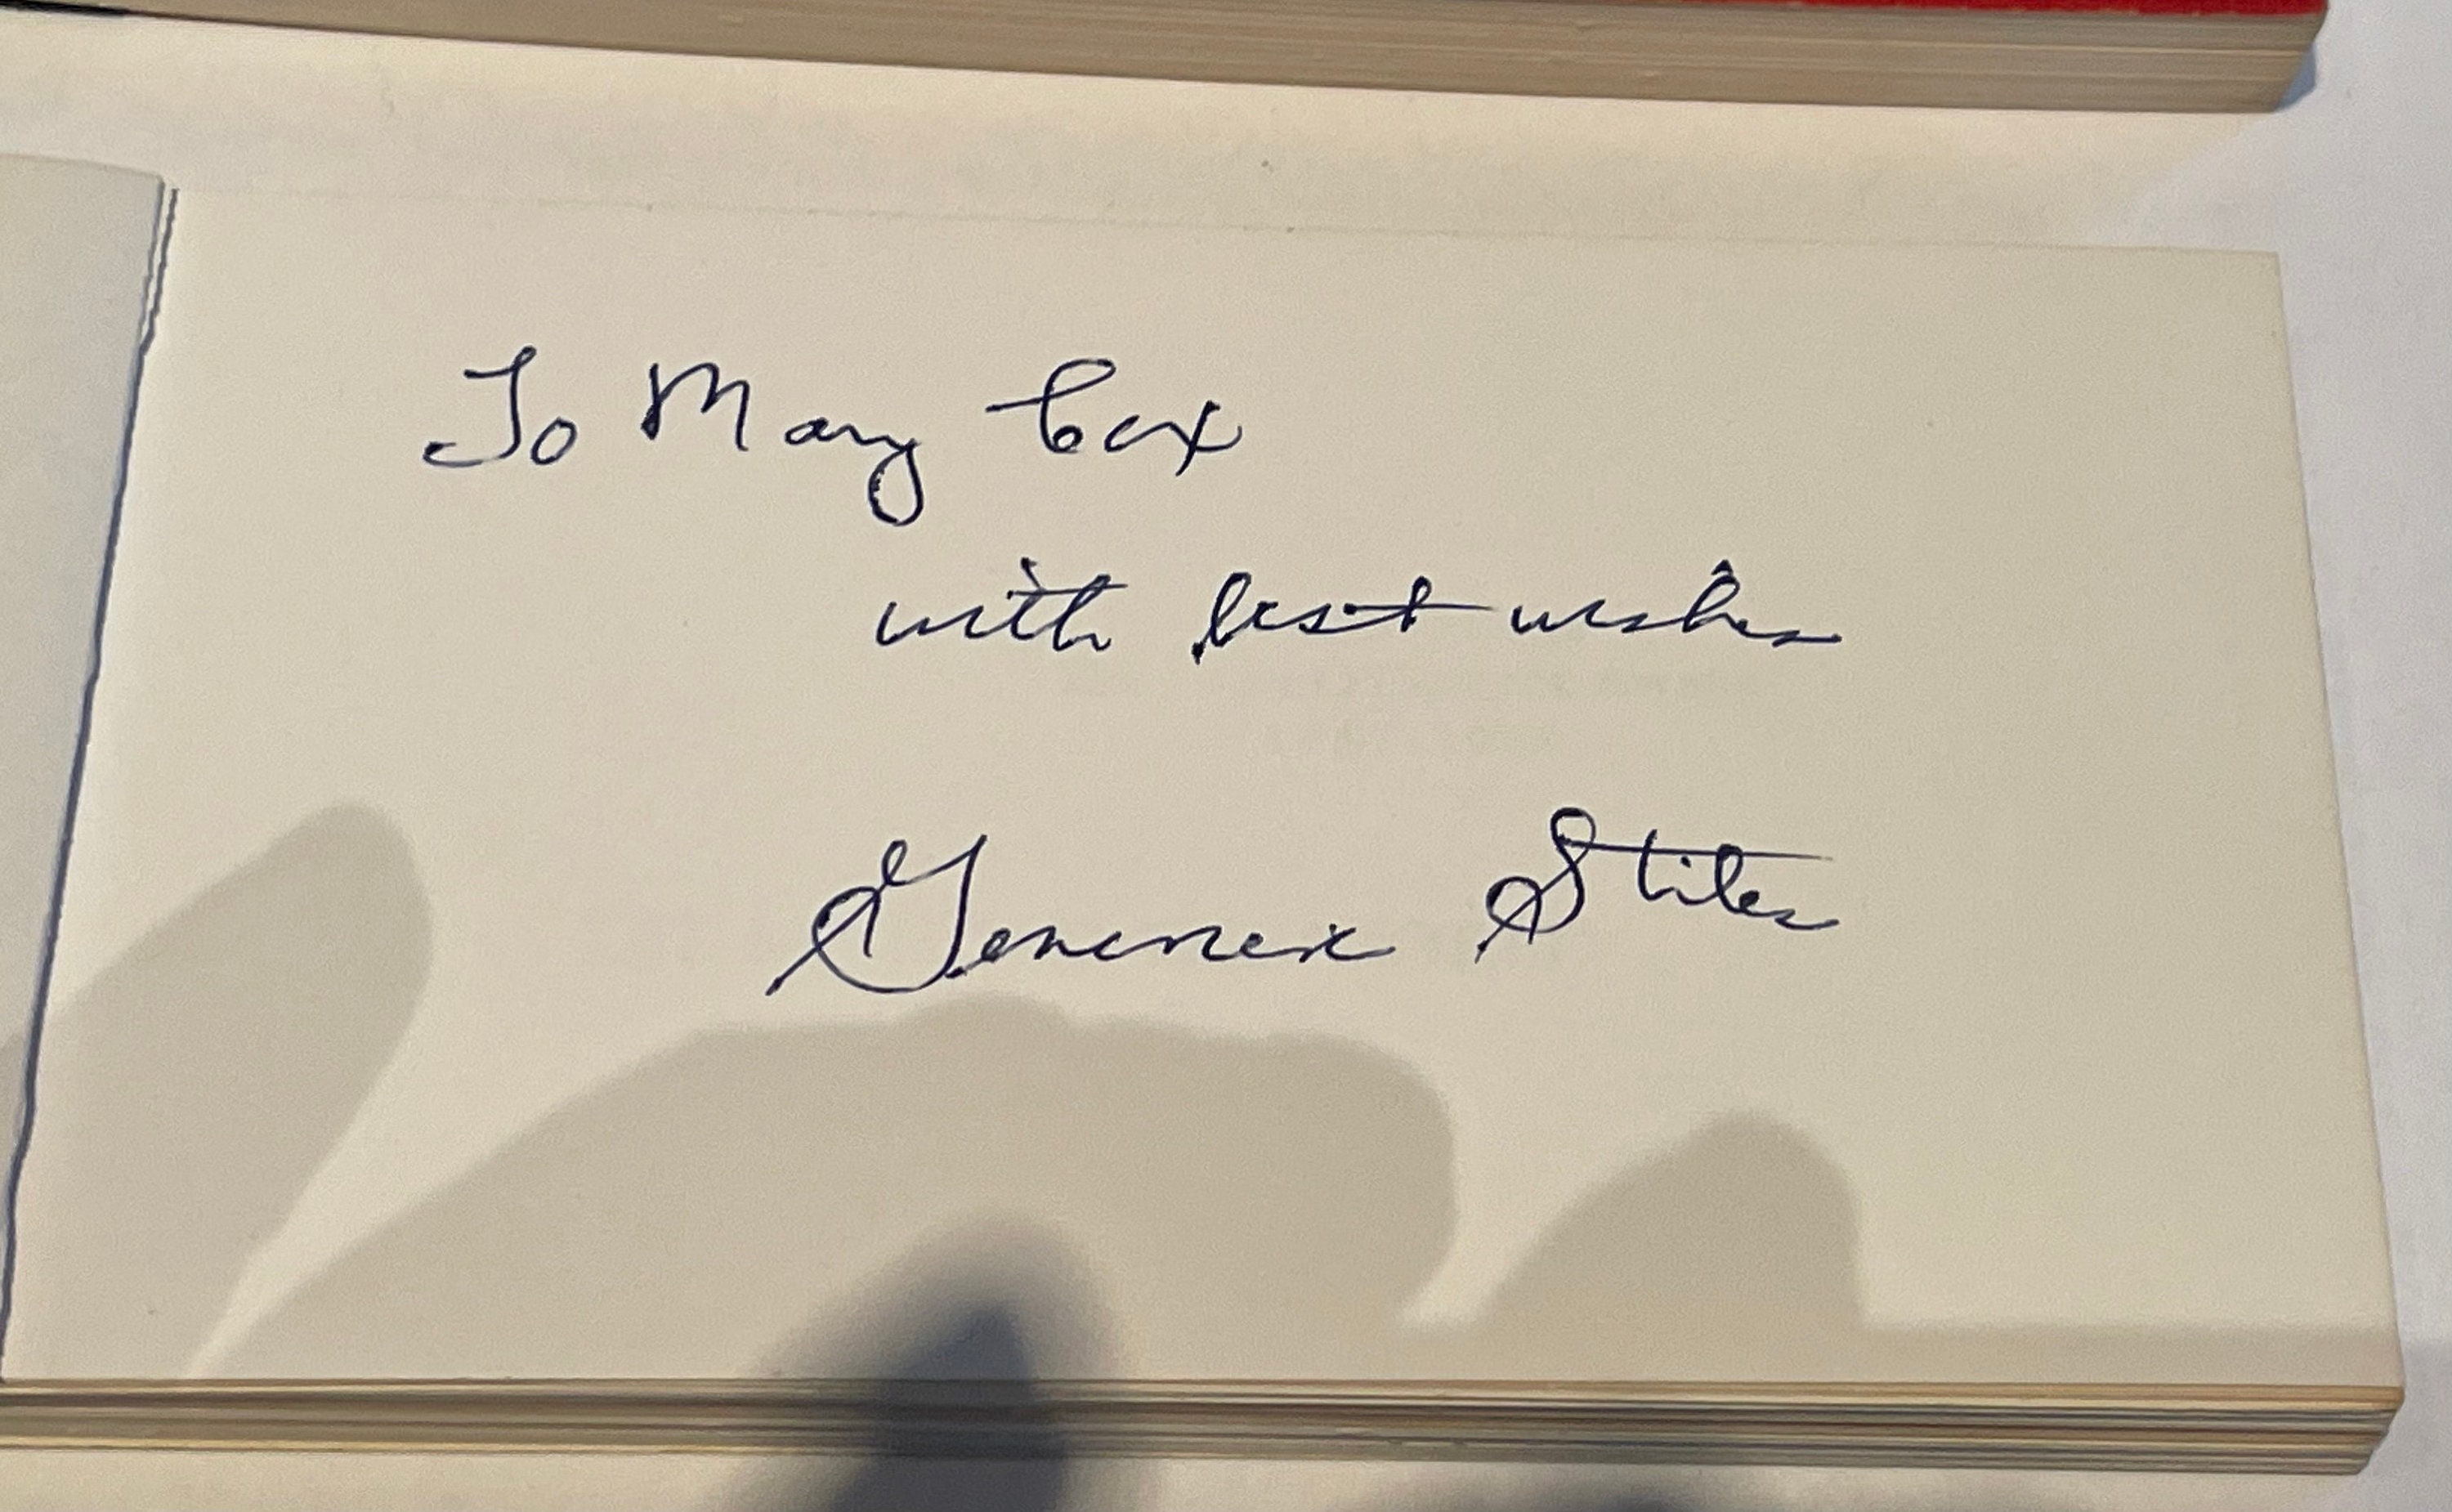 To Mary Cox
with best wishes
Stiles